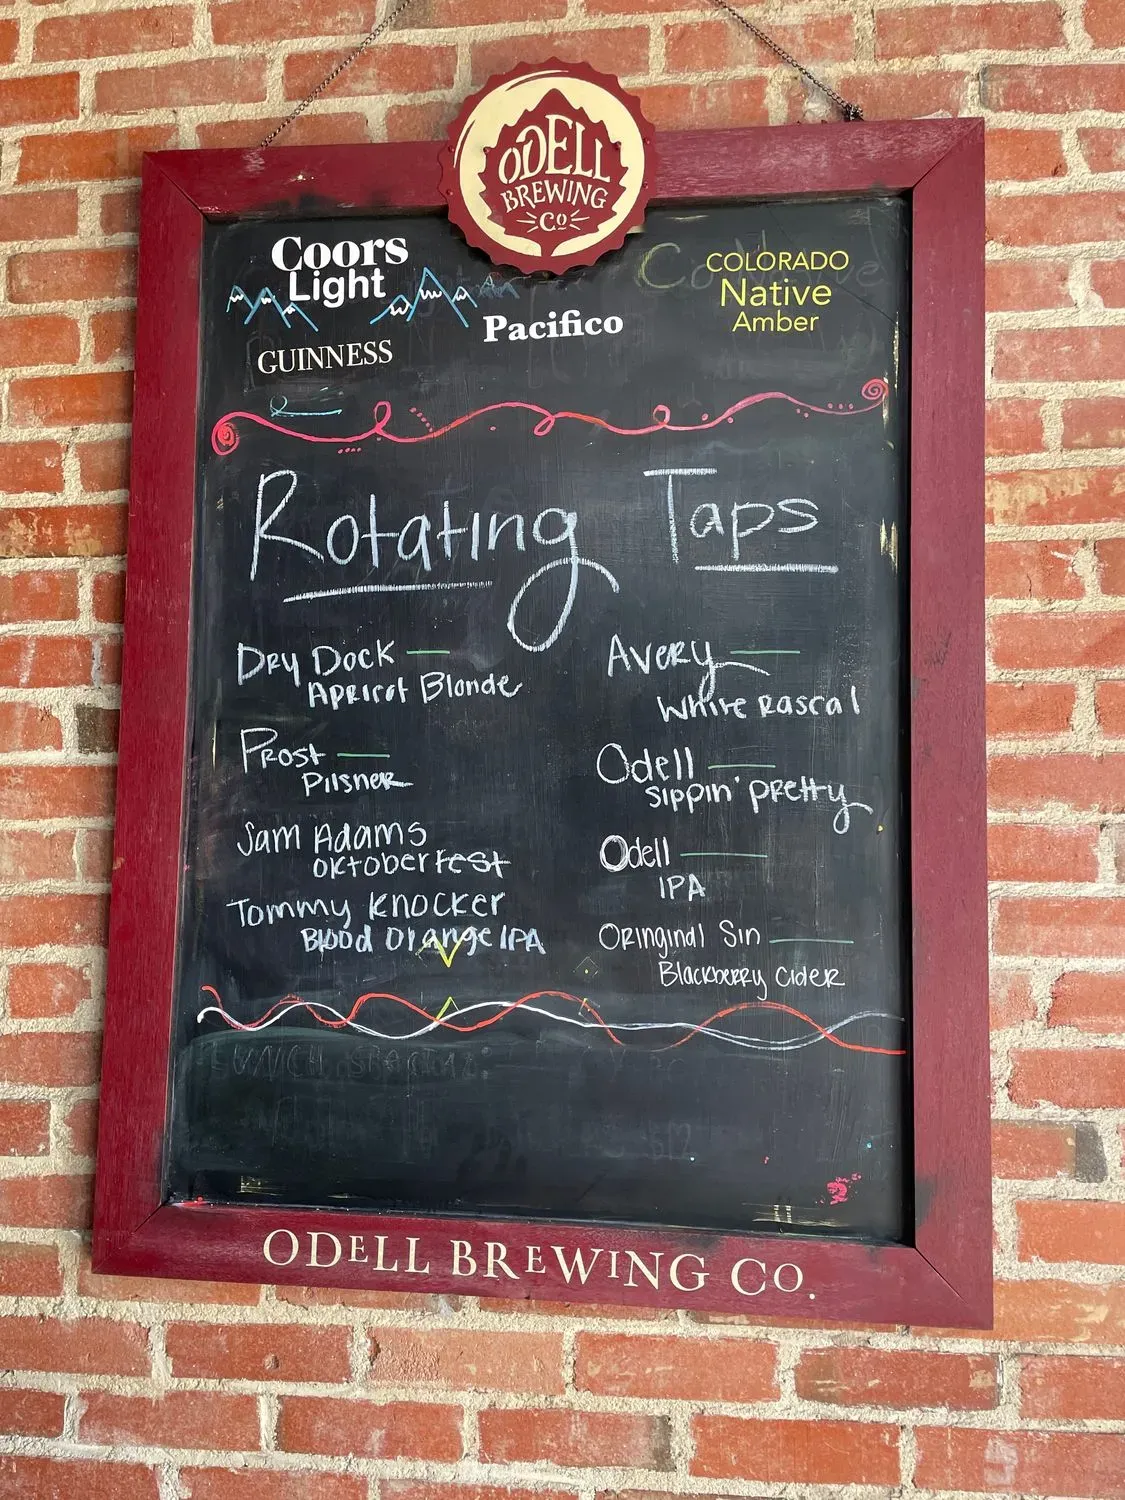 ODELL
BREWING
Co
Coors
Light
GUINNESS
Pacifico
COLORADO
Native
Amber
Rotating Taps
Dry Dock —
Apricot Blonde
Prost —
Pilsner
Sam Adams
Oktoberfest
Tommy Knocker
Blood Orange IPA
Avery —
White Rascal
Odell —
Sippin' Pretty
Odell —
IPA
Oringinal Sin —
Blackberry Cider
LUNCH SPECIAL
ODELL BREWING CO.